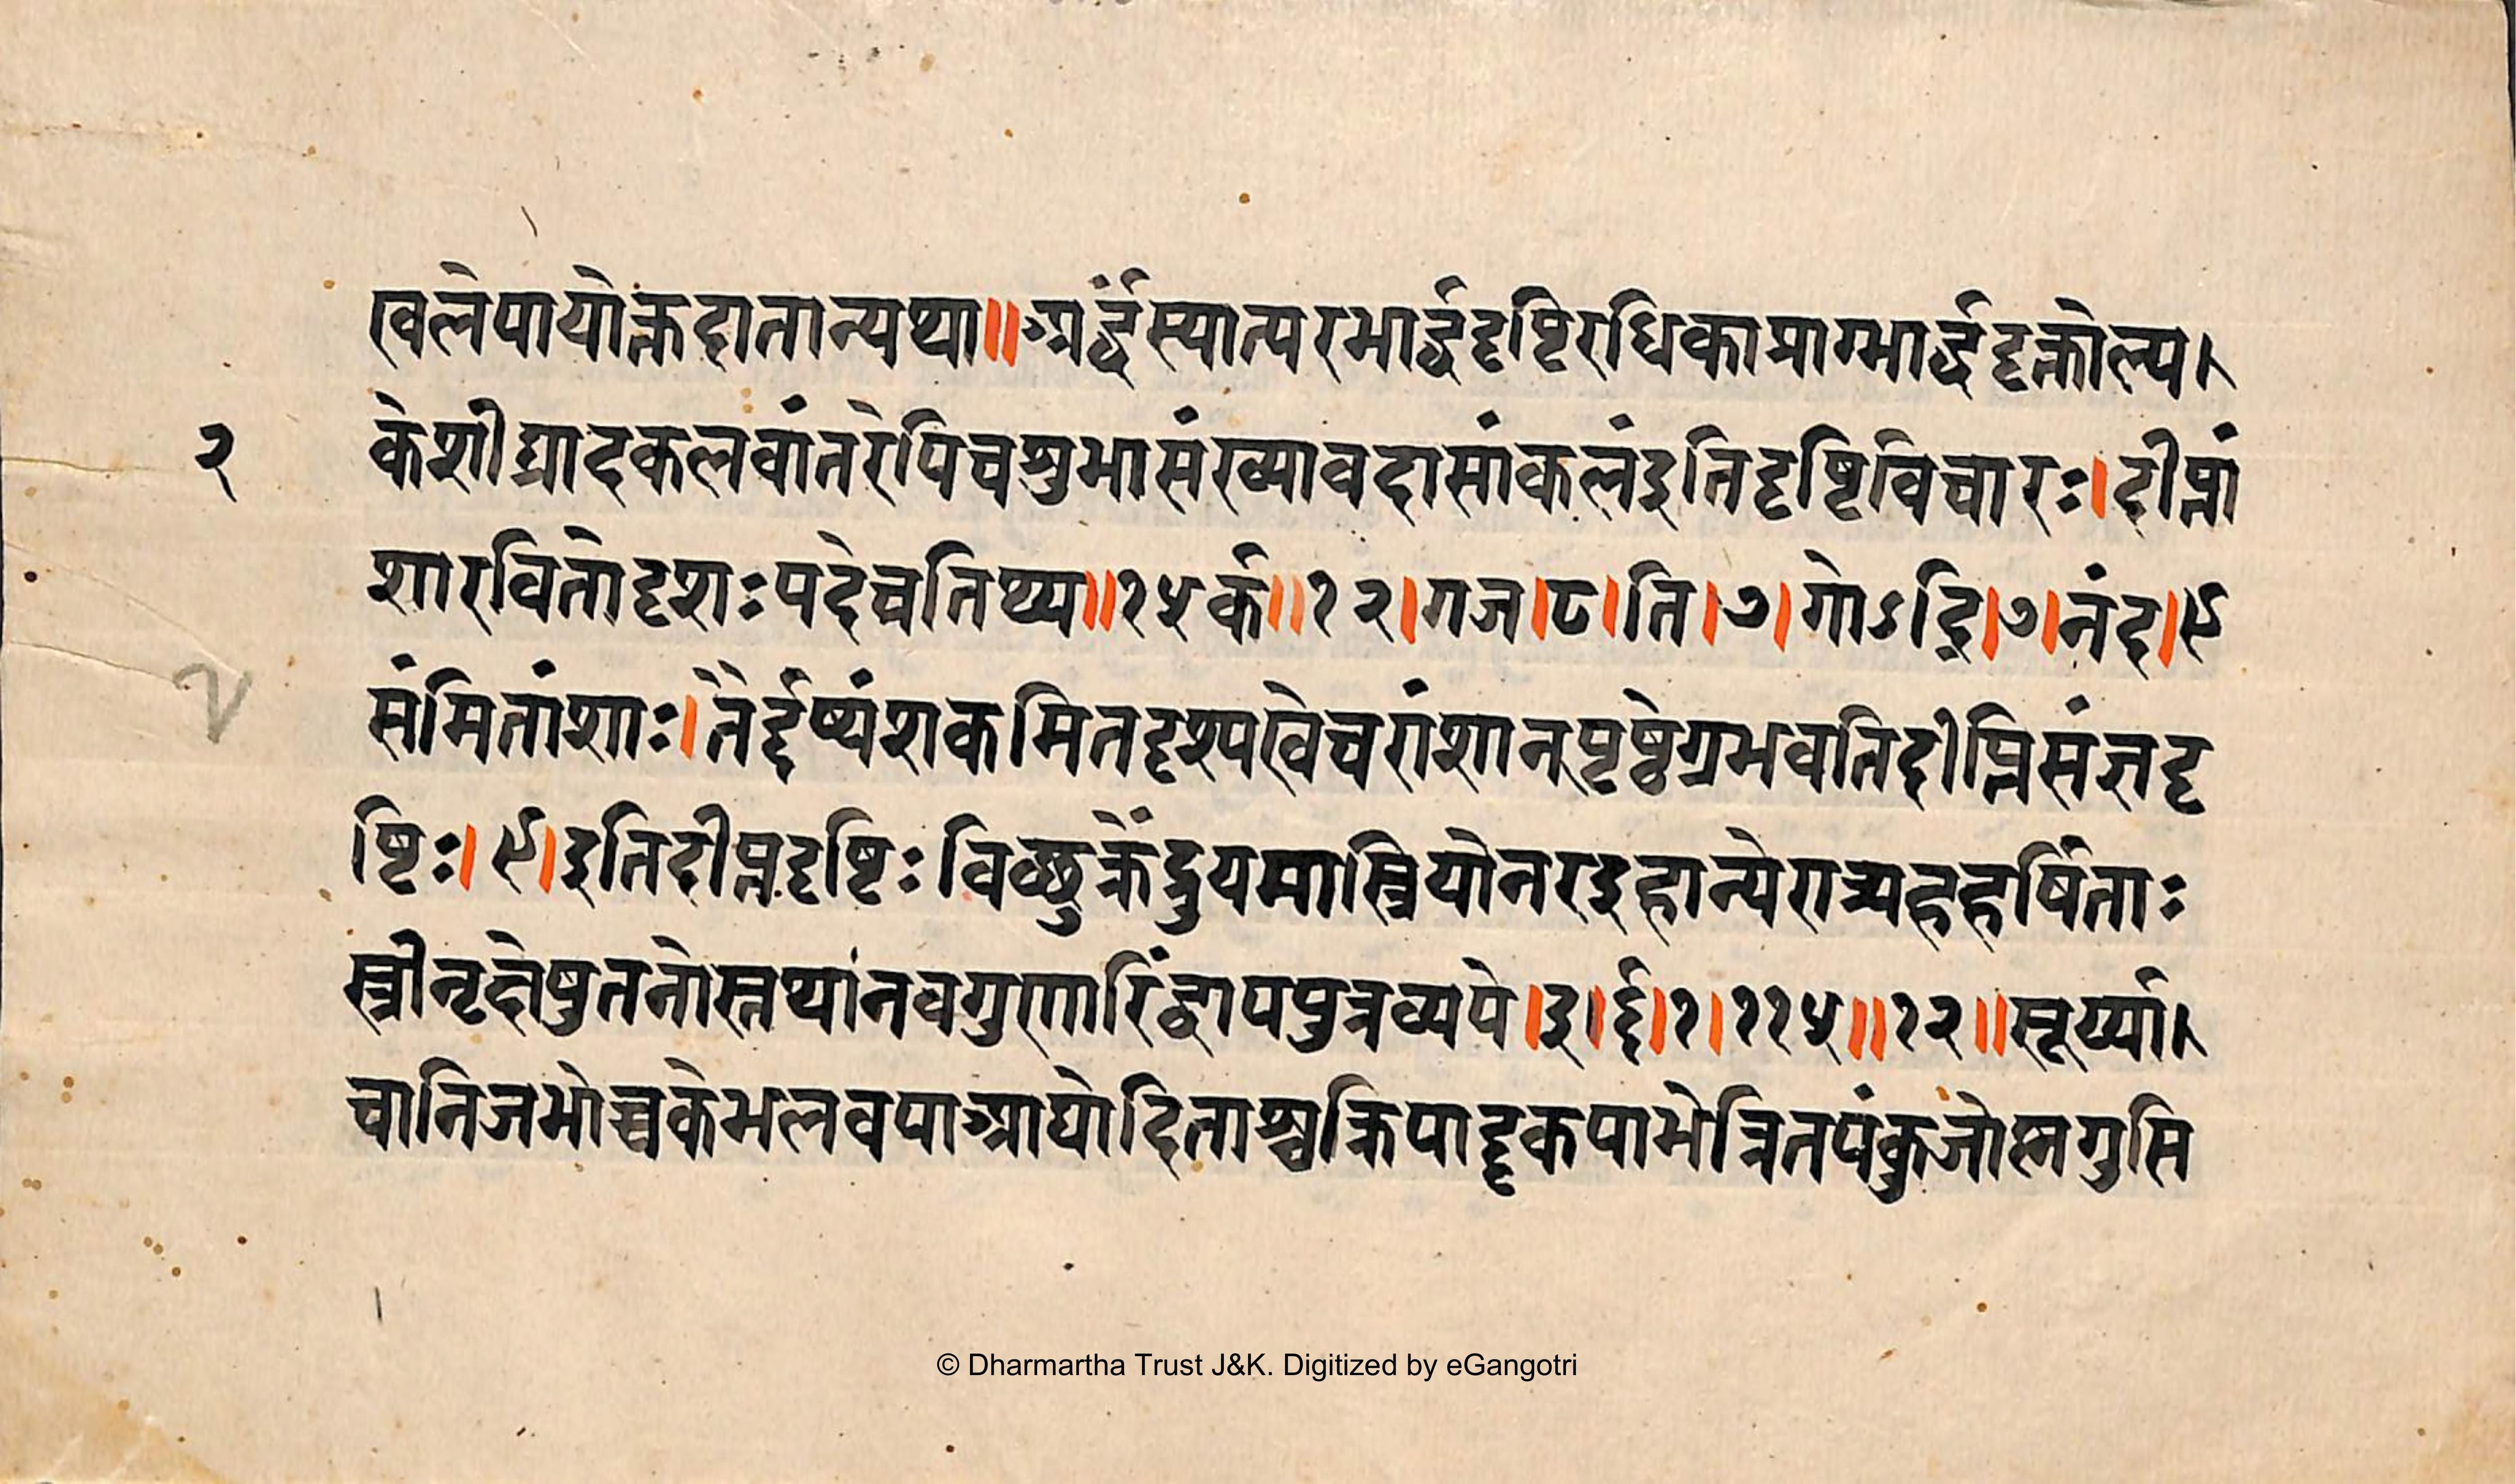 खलेपायोक्तदातान्यथा॥अर्द्धंस्यात्परभार्द्धदृष्टिरधिकाप्राग्भार्द्धदृक्तोल्प।
२
केशीघ्रादकलवांतरेपिचशुभासंख्यावदासांकलंइतिदृष्टिविचारः।दीप्तां
शारवितोदृशःपदेचतिथ्य॥१५र्क॥१२।गज।८।ति।७।गोऽद्रि।७।नंद।९
संमितांशाः।तैर्दृष्यंशकमितदृश्यखेचरांशान्पृष्ठेग्रभवतिदीप्तिसंज्ञदृ
२
ष्टिः।९।इतिदीप्तदृष्टिःविच्छुक्रेंदुयमास्त्रियोनरइहान्येरात्र्यह्नहर्षिताः
स्त्रीनृक्षेषुतनोस्तथांनवगुणारिंद्वापपुत्रव्यपे।३।र्द्द।१।११५॥१२॥सूर्य्या।
चानिजभोच्चकेभलवपाआद्योदिताश्चक्रिपाद्दृकपाभेत्रितपंकुजोह्नगुसि
© Dharmartha Trust J&K. Digitized by eGangotri